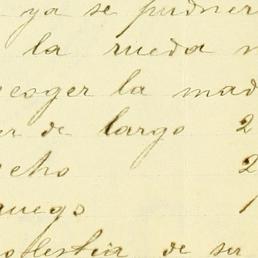 ya se pudrier
la rueda
coger la mad
er de largo 2
cho 2
uego 1
olestia de ser